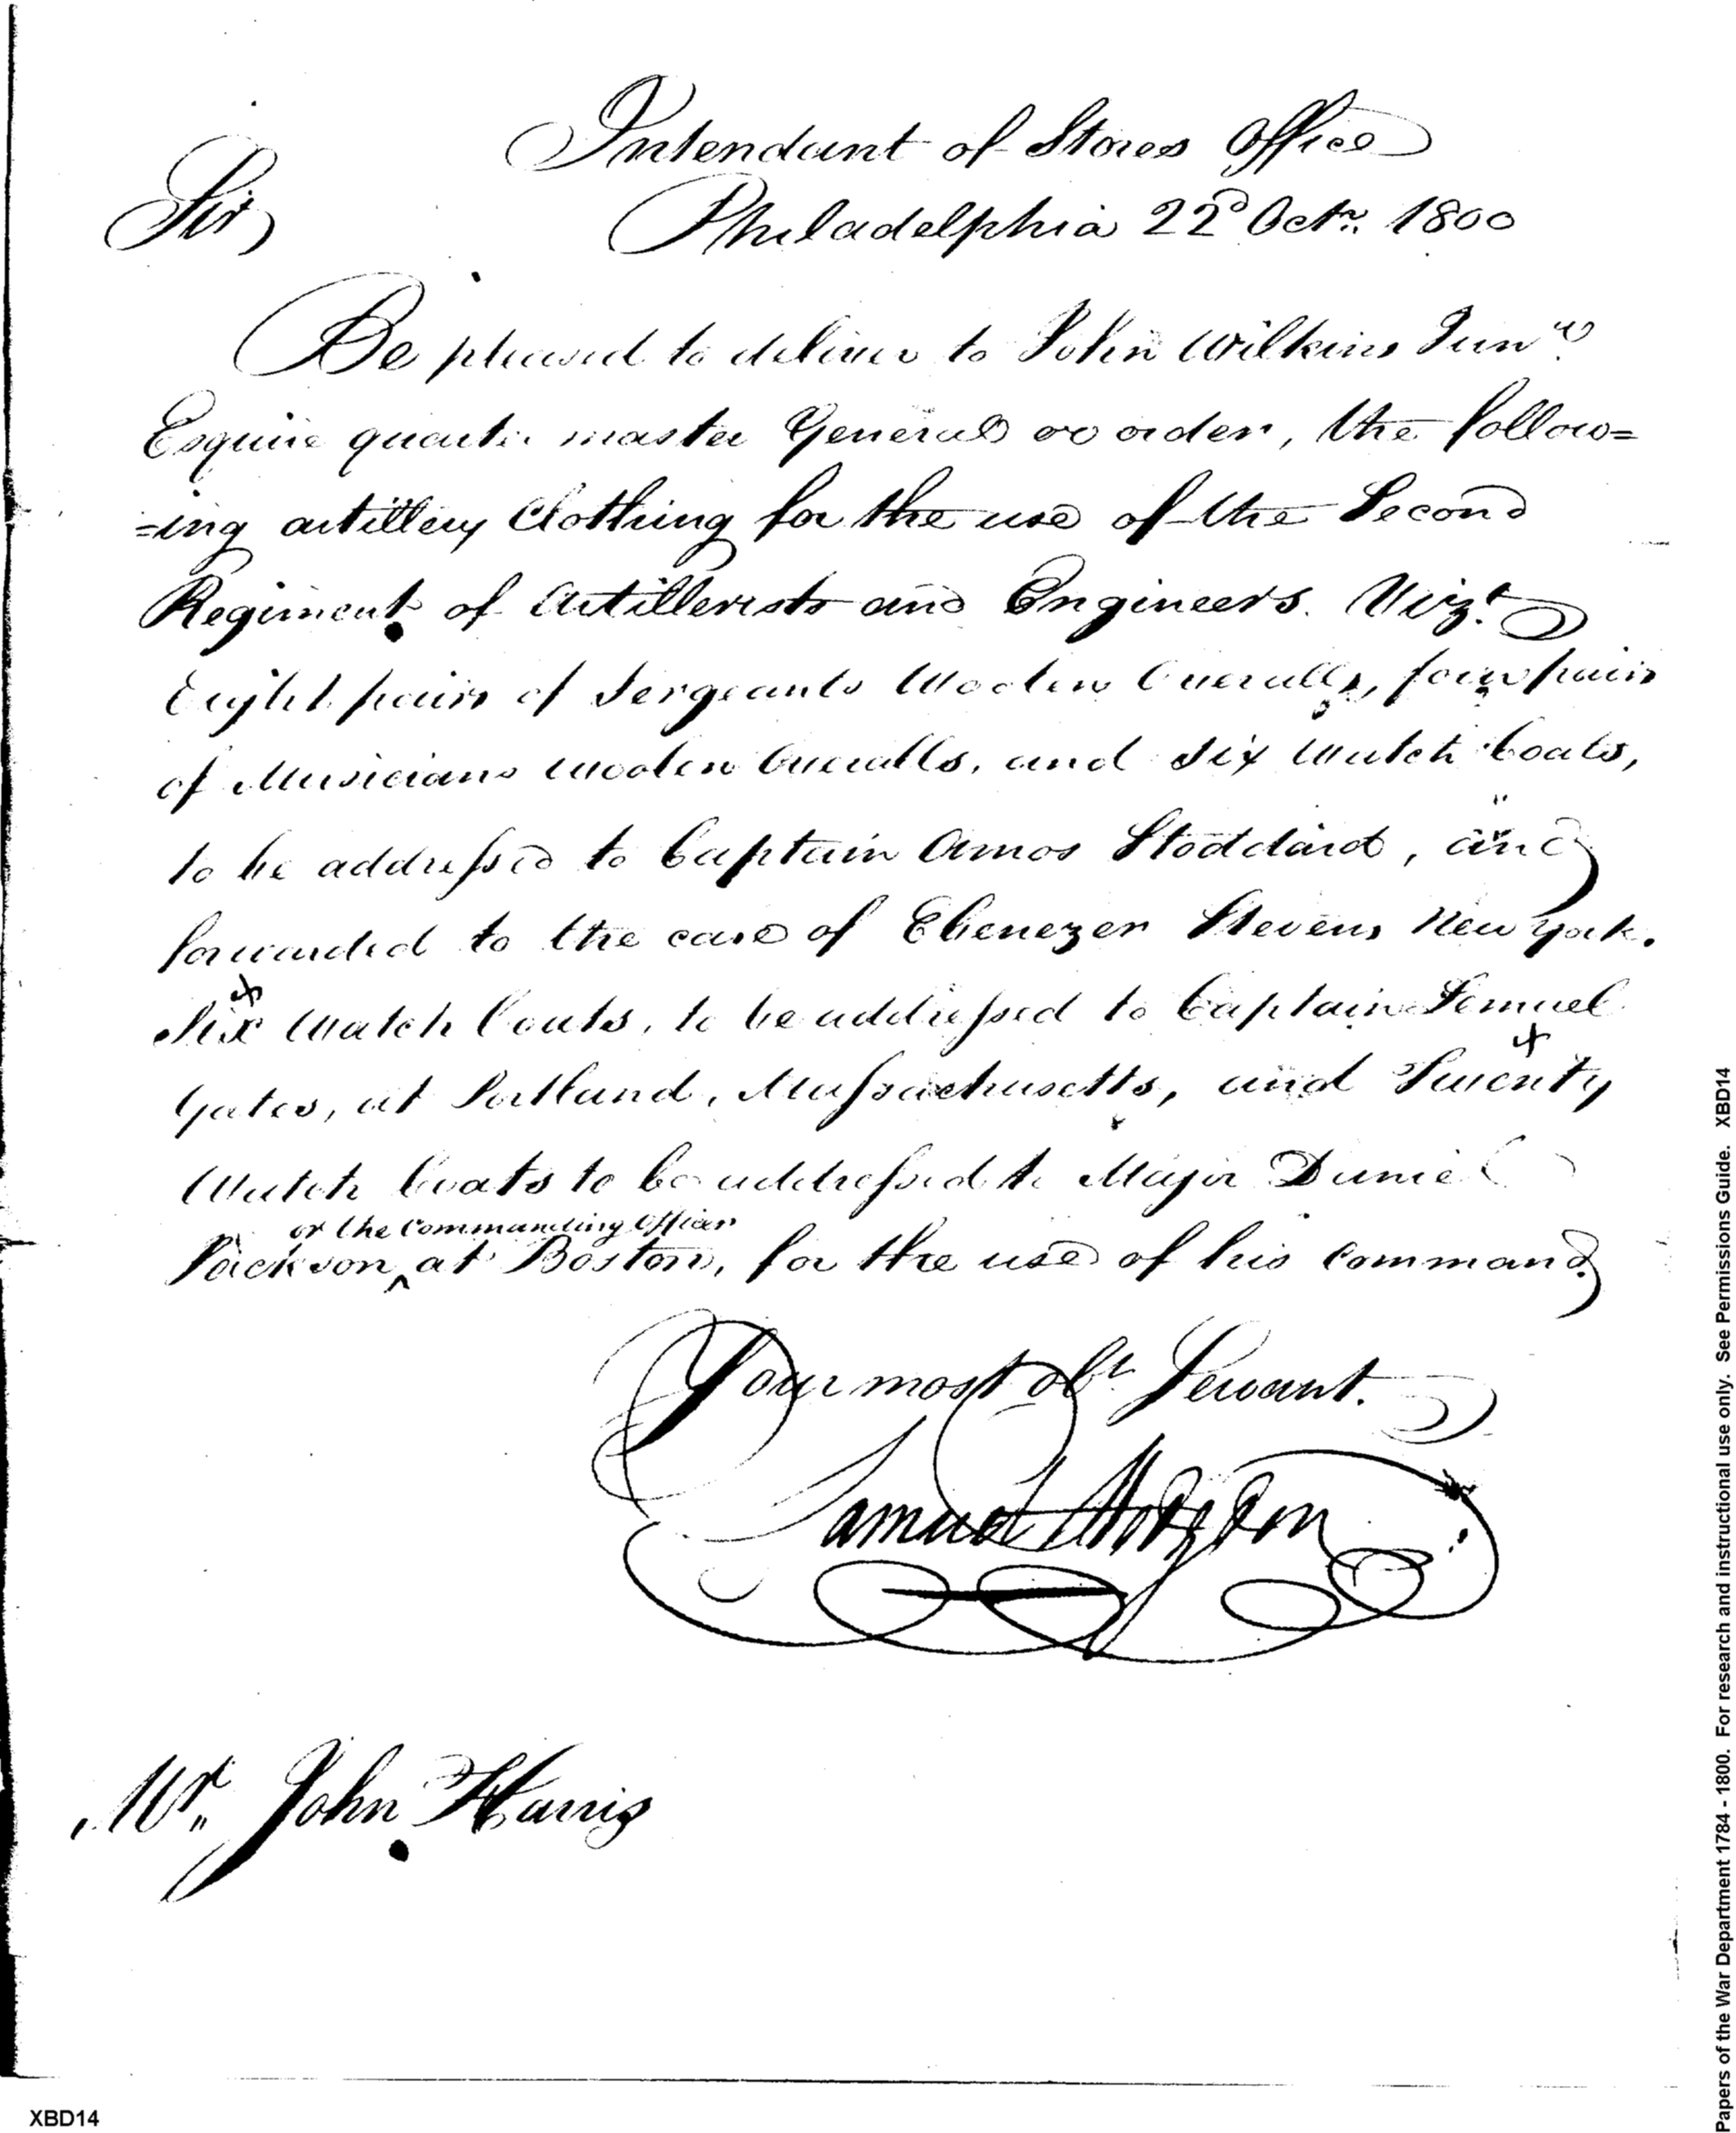 Intendant of Stores Office
Sir,
Philadelphia 22d Octr. 1800
Be pleased to deliver to John Wilkins Junr.
Esquire quarter master General or order, the follow=
=ing artillery Clothing for the use of the Second
Regiment of Artillerists and Engineers. Vizt.
Eight pairs of Sergeants Woolen Overalls, four pairs
of Musicians woolen Overalls, and six Watch Coats,
to be addressed to Captain Amos Stoddard, and
forwarded to the care of Ebenezer Stevens New York.
Six Watch Coats, to be addressed to Captain Lemuel
Gates, at Portland, Massachusetts, and Twenty
Watch Coats to be addressed to Major Daniel
or the Commanding Officer
Jackson ^ at Boston, for the use of his command.
Your most obt. Servant.
Samuel Hodgdon
Mr. John Harris
XBD14
Papers of the War Department 1784 - 1800. For research and instructional use only. See Permissions Guide. XBD14